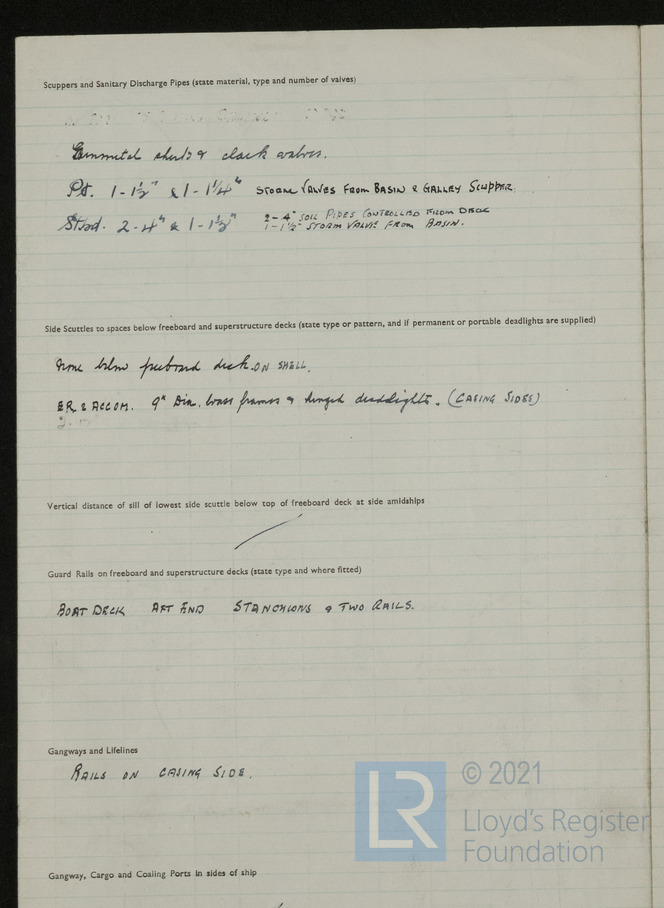 Scuppers and Sanitary Discharge Pipes (state material, type and number of valves)
Gunmetal shuts & clack valves.
Pt. 1-1½" & 1-1¼" STORM VALVES FROM BASIN & GALLEY SCUPPER.
Stbd. 2-4" & 1-1½" 2-4" SOIL PIPES CONTROLLED FROM DECK
1-1½" STORM VALVE FROM BASIN.
Side Scuttles to spaces below freeboard and superstructure decks (state type or pattern, and if permanent or portable deadlights are supplied)
None below freeboard deck ON SHELL.
ER & ACCOM. 9" Dia. brass frames & hinged deadlights. (CASING SIDES)
Vertical distance of sill of lowest side scuttle below top of freeboard deck at side amidships
Guard Rails on freeboard and superstructure decks (state type and where fitted)
BOAT DECK AFT END STANCHIONS & TWO RAILS.
Gangways and Lifelines
RAILS ON CASING SIDE.
© 2021
LR
Lloyd's Register
Foundation
Gangway, Cargo and Coaling Ports in sides of ship